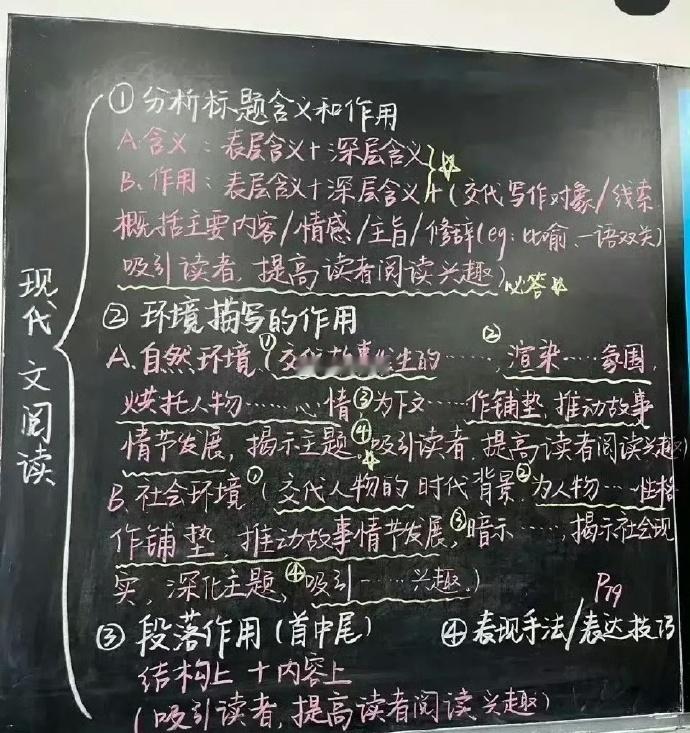 现代文阅读
① 分析标题含义和作用
A.含义：表层含义+深层含义
B.作用：表层含义+深层含义+(交代写作对象/线索
概括主要内容/情感/主旨/修辞(eg:比喻、一语双关)
吸引读者,提高读者阅读兴趣)必答
② 环境描写的作用
A.自然环境(①交代故事发生的……,②渲染……氛围,
烘托人物………情③为下文……作铺垫,推动故事
情节发展,揭示主题.④吸引读者,提高读者阅读兴趣)
B.社会环境①(交代人物的时代背景②为人物…性格
作铺垫,推动故事情节发展,③暗示……,揭示社会现
实,深化主题,④吸引……兴趣.)
P79
③ 段落作用(首中尾) ④表现手法/表达技巧
结构上+内容上
(吸引读者,提高读者阅读兴趣)